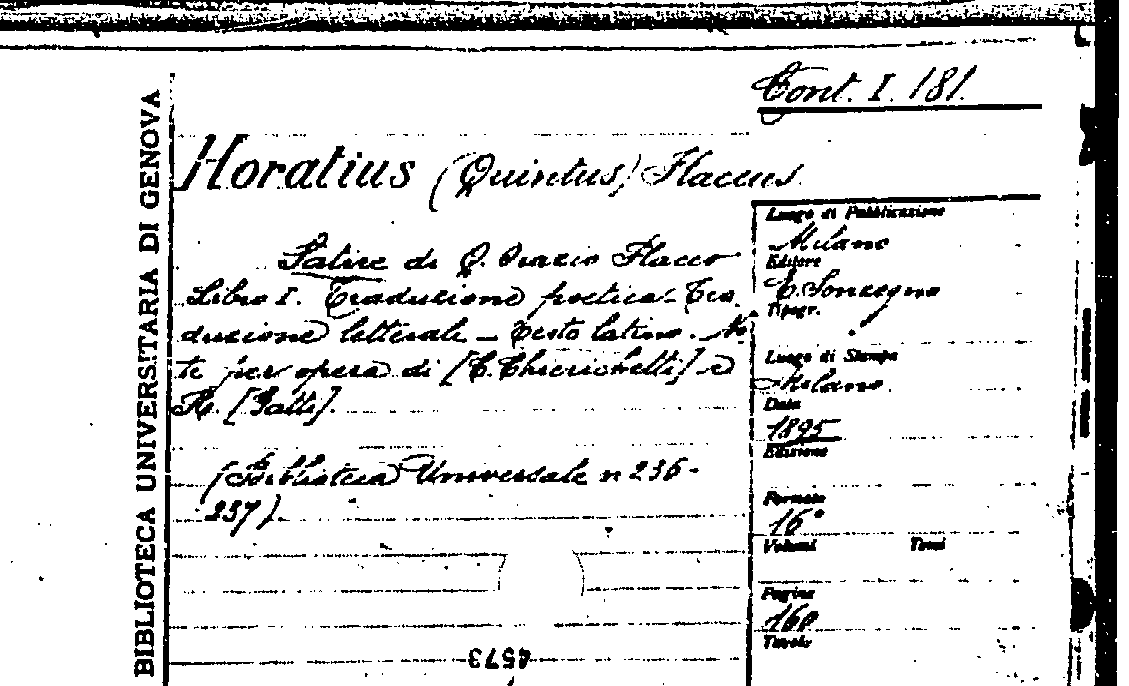 BIBLIOTECA UNIVERSITARIA DI GENOVA
Cont. I. 181.
Horatius (Quintus) Flaccus
Satire di Q. Orazio Flacco
Libro I. Traduzione poetica - Tra
duzione letterale - Testo latino. No
te per opera di [C. Chierichetti] e
R. [Gatti].
(Biblioteca Universale n 236-
237)
Luogo di Pubblicazione
Milano
Editore
E. Sonzogno
Tipogr.
Luogo di Stampa
Milano.
Data
1895
Edizione
Formato
16°
Volumi Tomi
Pagine
160
Tavole